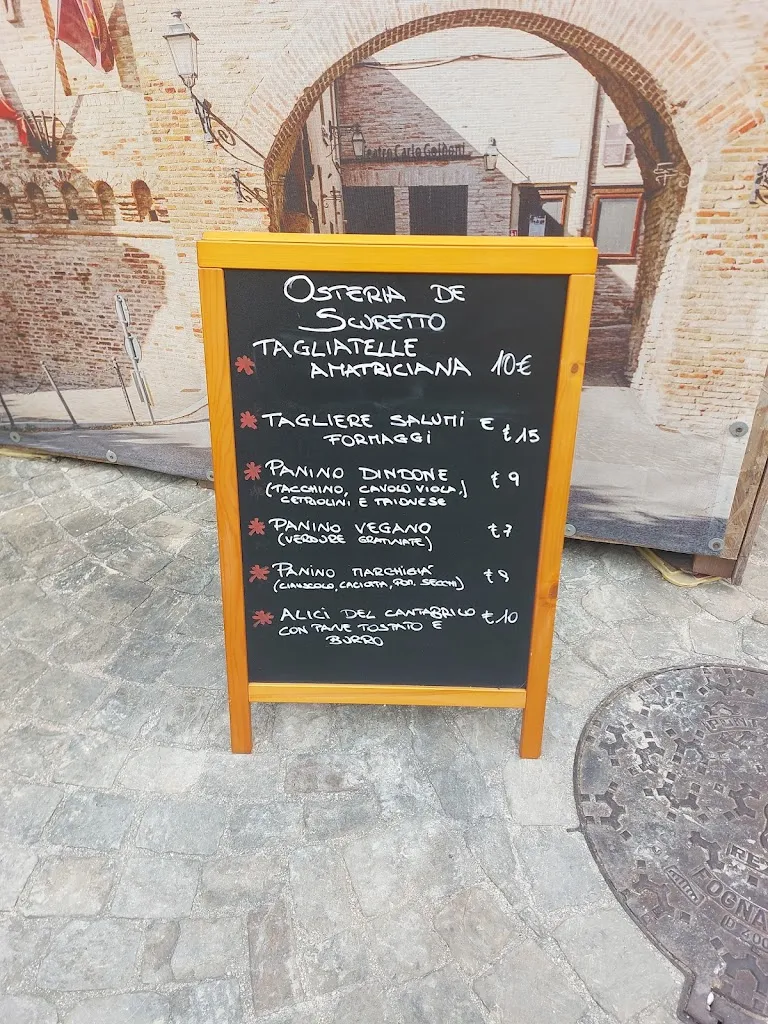 Teatro Carlo Goldoni
OSTERIA DE
SCURETTO
TAGLIATELLE
AMATRICIANA 10€
TAGLIERE SALUMI E
FORMAGGI €15
PANINO DINDONE €9
(TACCHINO, CAVOLO VIOLA,
CETRIOLINI E MAIONESE
PANINO VEGANO €7
(VERDURE GRATINATE)
PANINO MARCHIGIA'
(CIAUSCOLO, CACIOTTA, POM. SECCHI)
ALICI DEL CANTABRICO €10
CON PANE TOSTATO E
BURRO
FOGNA